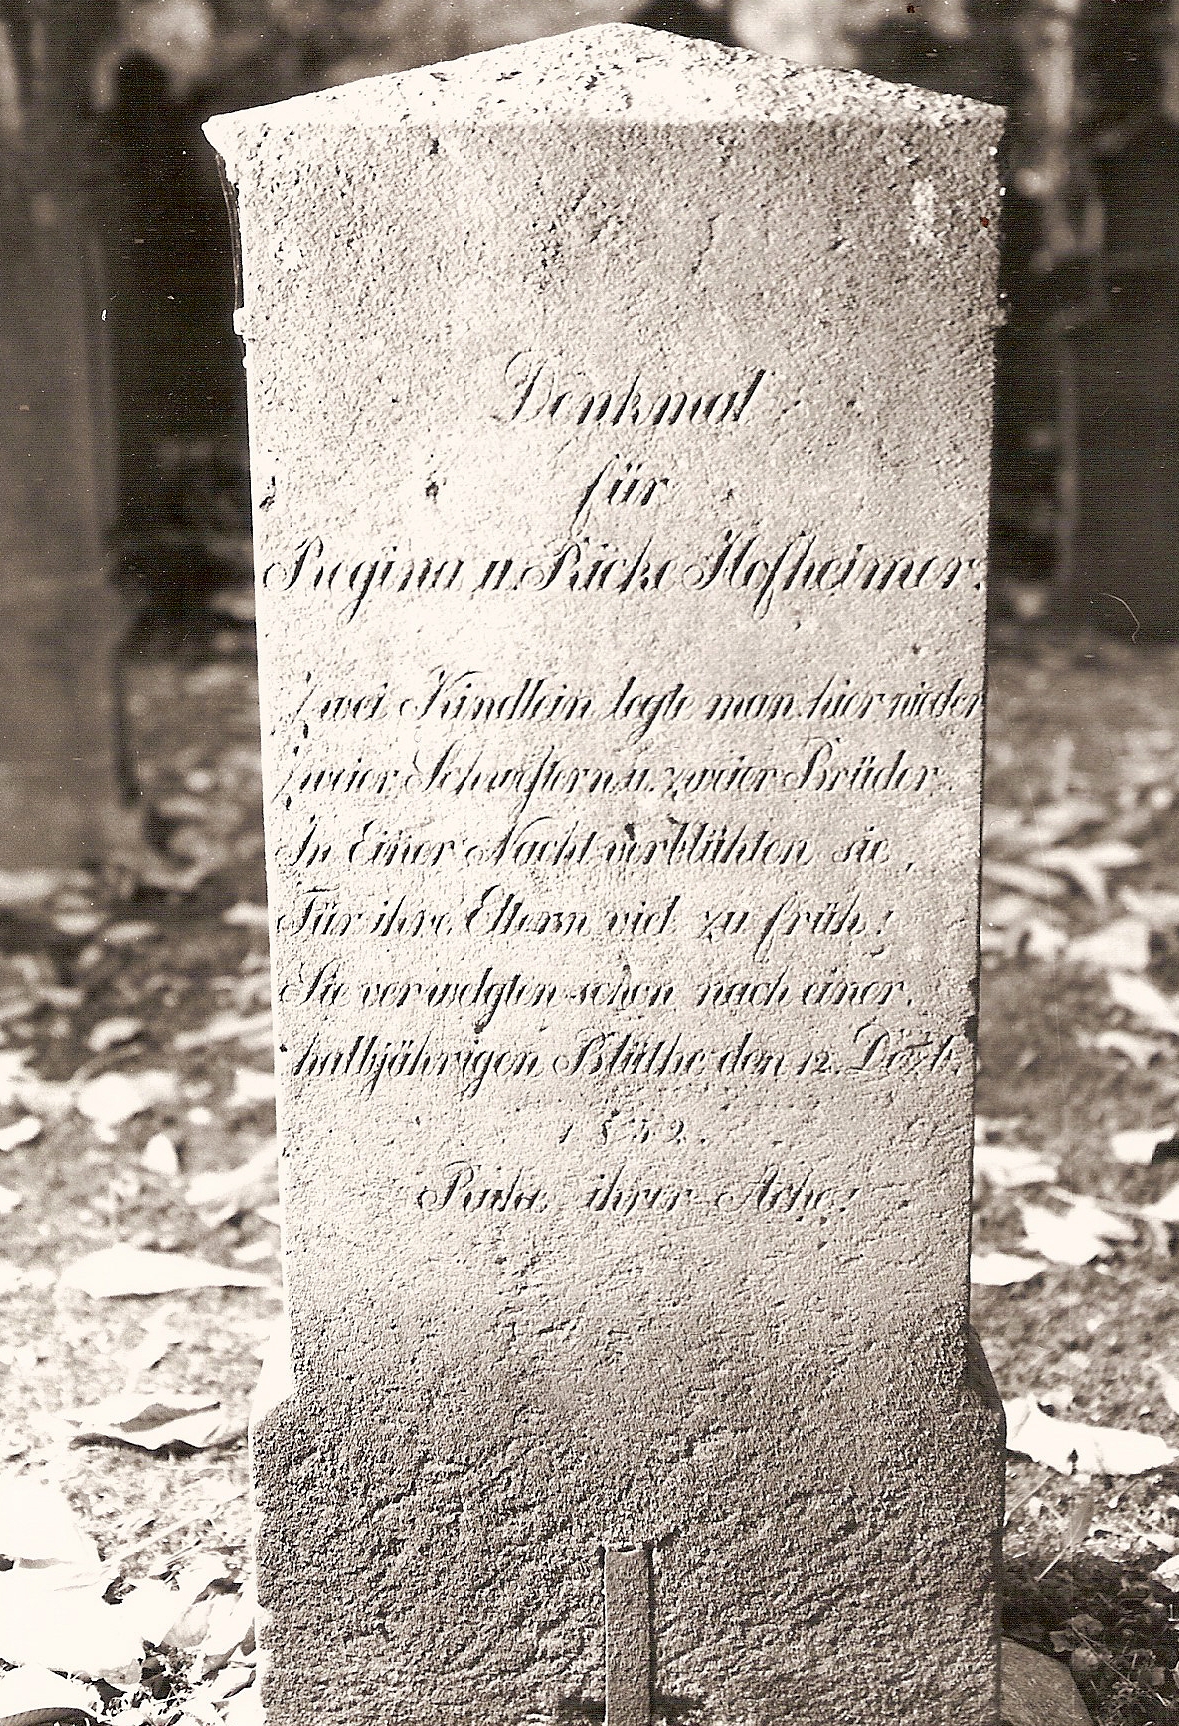 Denkmal
für
Regina u. Ricke Hofheimer.
Zwei Kindlein legte man hier nieder
Zweier Schwestern u. zweier Brüder.
In Einer Nacht verblühten sie,
Für ihre Eltern viel zu früh!
Sie verwelgten schon nach einer
halbjährigen Blüthe den 12. Dezb.
Ruhe ihrer Asche!